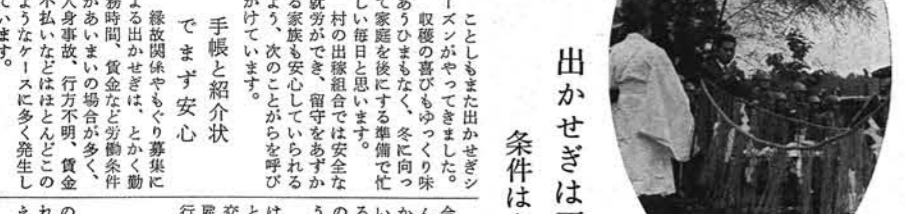 出かせぎは
条件は
ことしもまた出かせぎシ
ーズンがやってきました。
収穫の喜びもゆっくり味
あうひまもなく、冬に向っ
て家庭を後にする準備で忙
しい毎日と思います。
村の出稼組合では安全な
就労ができ、留守をあずか
る家族も安心していられる
よう、次のことがらを呼び
かけています。
手帳と紹介状
でまず安心
縁故関係やもぐり募集に
よる出かせぎは、とかく勤
務時間、賃金など労働条件
があいまいの場合が多く、
人身事故、行方不明、賃金
不払いなどはほとんどこの
ようなケースに多く発生し
ています。